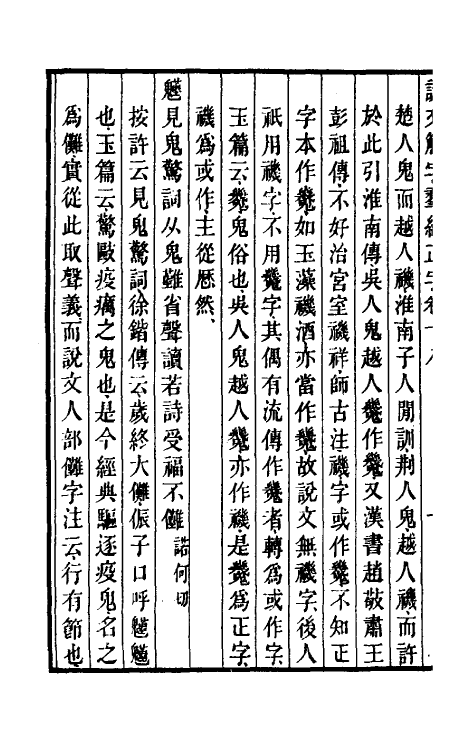 楚人鬼而越人禨淮南子人閒訓荆人鬼越人禨而許
於此引淮南傳吳人鬼越人𩴆作𩴆又漢書趙敬肅王
彭祖傳不好治宮室禨祥師古注禨字或作𩴆不知正
字本作𩴆如玉藻禨酒亦當作𩴆故說文無禨字後人
祇用禨字不用𩴆字其偶有流傳作𩴆者轉爲或作字
玉篇云𩴆鬼俗也吳人鬼越人𩴆亦作禨是𩴆爲正字
禨爲或作主從厯然
魖見鬼驚詞从鬼難省聲讀若詩受福不儺 諾何切
按許云見鬼驚詞徐鍇傳云歲終大儺侲子口呼魖魖
也玉篇云驚毆疫癘之鬼也是今經典驅逐疫鬼名之
爲儺實從此取聲義而說文人部儺字注云行有節也